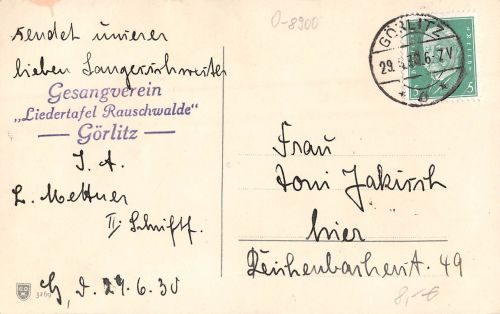 O-8900
sendet unserer
lieben Sangesschwester
Gesangverein
„Liedertafel Rauschwalde"
— Görlitz —
I. A.
L. Mettner
II. Schriftf.
G, d. 29.6.30
3260
GÖRLITZ
29.6.30.6-7V
* d *
5 5
Frau
Toni Jakirsch
hier
Reichenbacherst. 49
8,-€